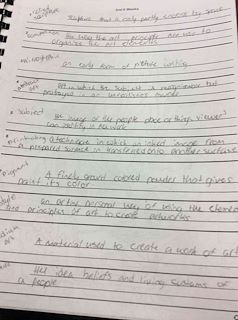 sculpture that is only partly enclosed by space
the way the art principles are used to
organize the art elements
an early form of picture writing
art in which the subject is recognizable but
portrayed in an unrealistic manner
Subject
the image of the people place or things viewers
can identify in the work
a technique in which an inked image from
a prepared surface is transferred onto another surface
Pigment
A finely ground colored powder that gives
paint its color
an artist personal way of using the elements
the principles of art to create artworks
A material used to create a work of art
the idea beliefs and living customs of
a people